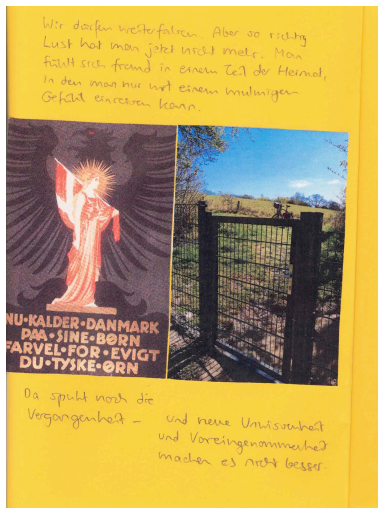 Wir dürfen weiterfahren. Aber so richtig
Lust hat man jetzt nicht mehr. Man
fühlt sich fremd in einem Teil der Heimat,
in den man nur mit einem mulmigen
Gefühl einreisen kann.
NU·KALDER·DANMARK
PAA·SINE·BØRN
FARVEL·FOR·EVIGT
DU·TYSKE·ØRN
Da spukt noch die
Vergangenheit –
und neue Unwissenheit
und Voreingenommenheit
machen es nicht besser.